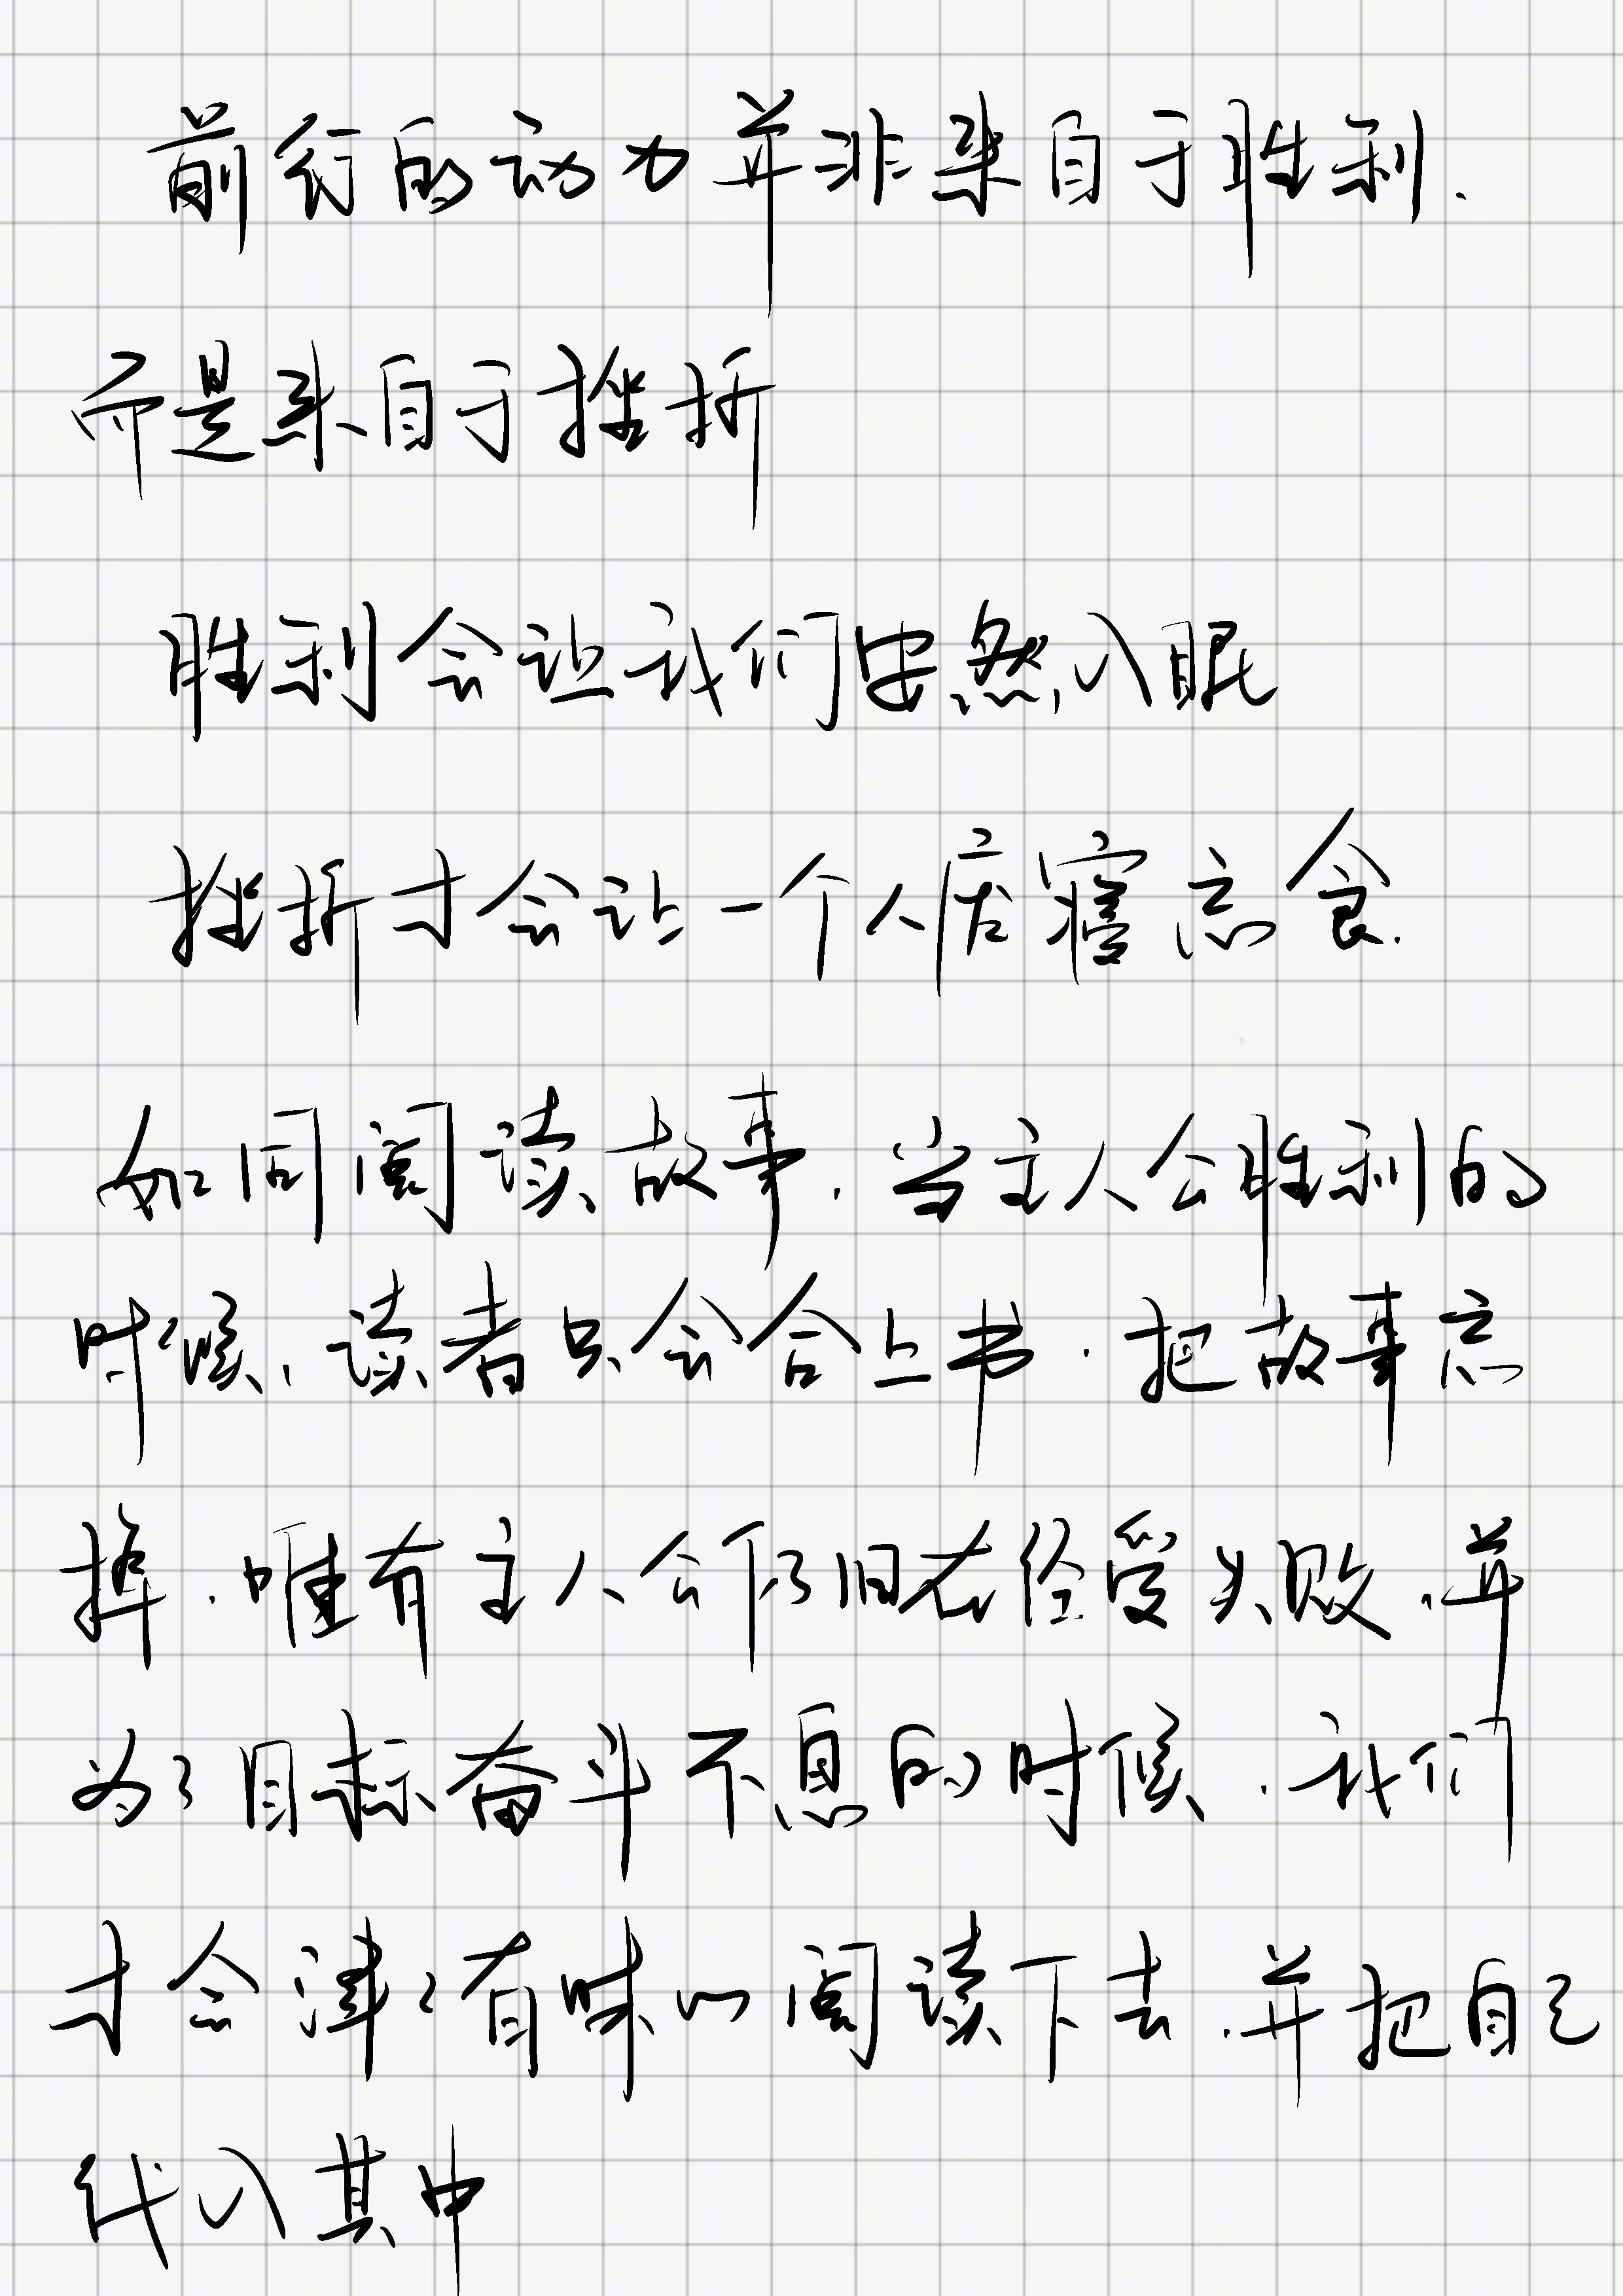 前行的动力并非来自于胜利.
而是来自于挫折
胜利会让我们安然入眠
挫折才会让一个人废寝忘食.
如同阅读故事.当主人公胜利的
时候、读者只会合上书.把故事忘
掉.唯有主人公仍旧在经受失败.并
为了目标奋斗不息的时候.我们
才会津々有味的阅读下去.并把自己
代入其中